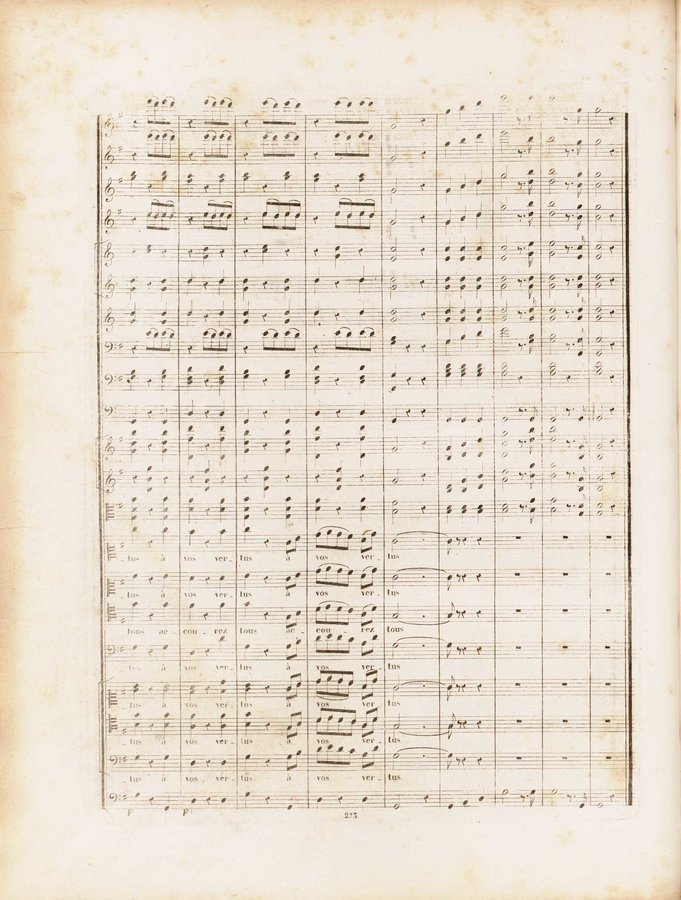 - tus à vos ver - tus à vos ver - tus
- tus à vos ver - tus à vos ver - tus
tous ac - cou - rez tous ac - cou - rez tous
à vos ver - tus à vos ver - tus
- tus à vos ver - tus à vos ver - tus
- tus à vos ver - tus à vos ver - tus
- tus à vos ver - tus à vos ver - tus
F F
273